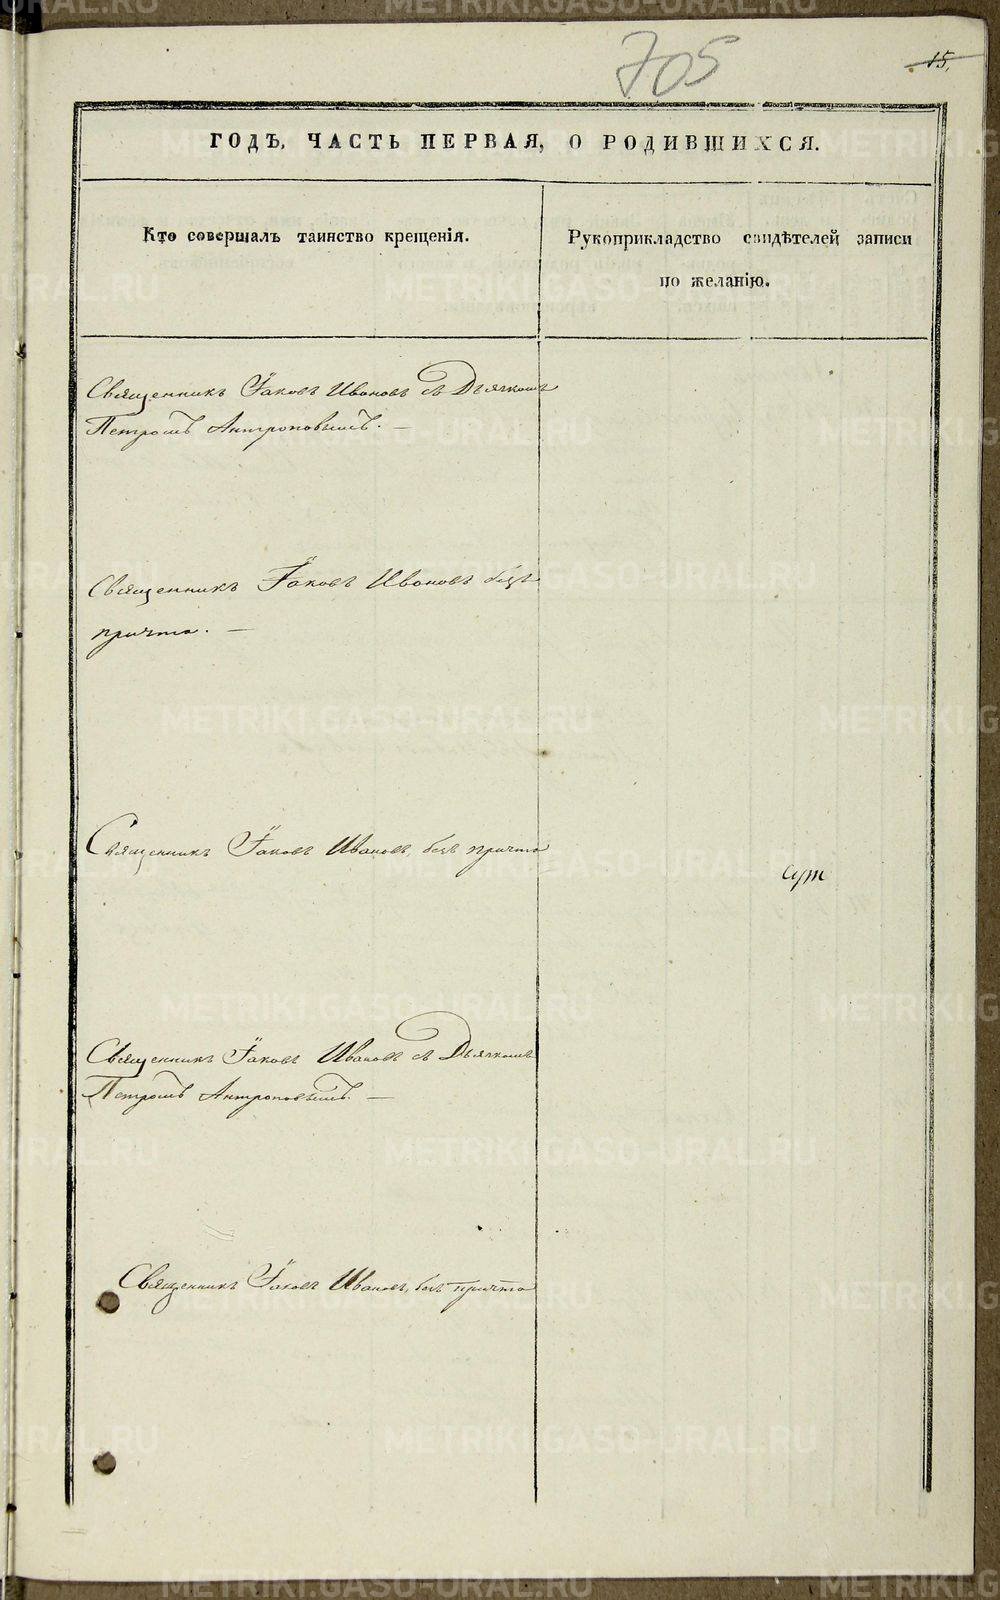 705
15.
ГОДЪ, ЧАСТЬ ПЕРВАЯ, О РОДИВШИХСЯ.
Кто совершалъ таинство крещенія.
Рукоприкладство свидѣтелей записи
по желанію.
Священникъ Іаковъ Ивановъ съ Дьячкомъ
Петромъ Антроповымъ. —
Священникъ Іаковъ Ивановъ безъ
причта. —
Священникъ Іаковъ Ивановъ, безъ причта
Священникъ Іаковъ Ивановъ съ Дьячкомъ
Петромъ Антроповымъ. —
Священникъ Іаковъ Ивановъ, безъ причта
METRIKI.GASO-URAL.RU